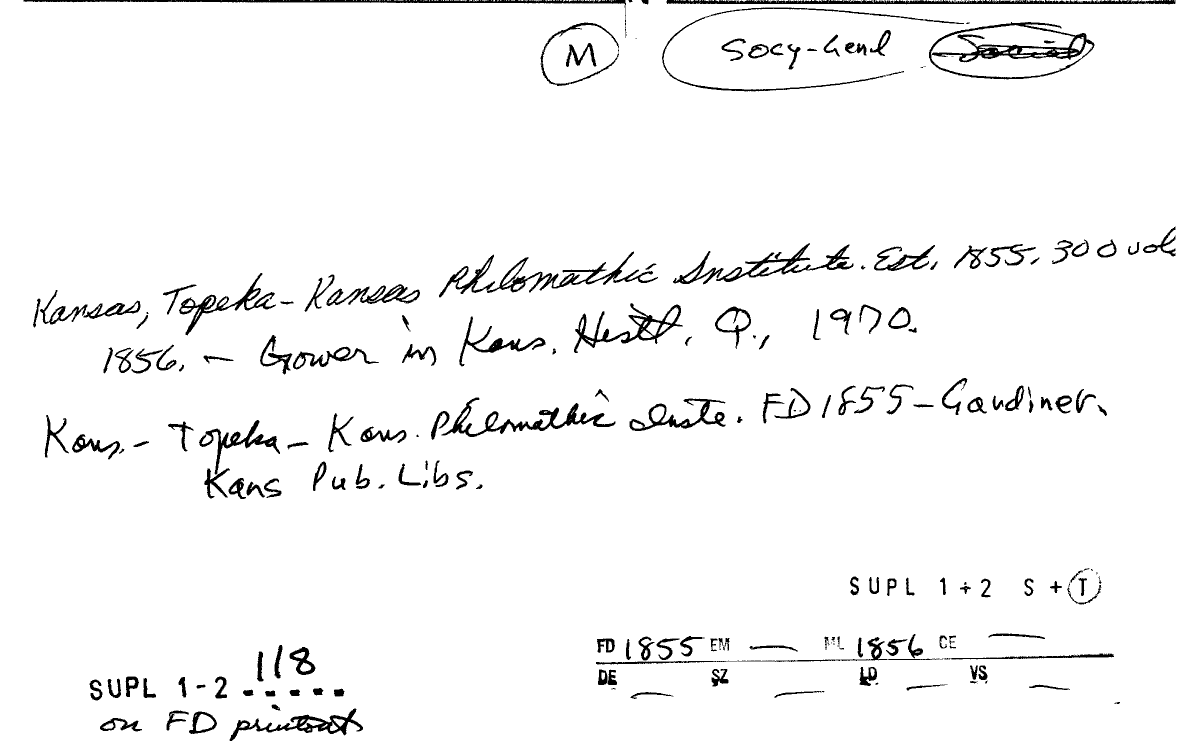 M Socy-Genl Social
Kansas, Topeka - Kansas Philomathic Institute. Est. 1855, 300 vols
1856. - Gower in Kans. Histl. Q., 1970.
Kans. - Topeka - Kans. Philomathic Inste. FD 1855 - Gardiner.
Kans Pub. Libs.
SUPL 1+2 S + T
FD 1855 EM — ML 1856 CE —
DE — SZ — LD — VS —
118
SUPL 1-2 -----
on FD printout